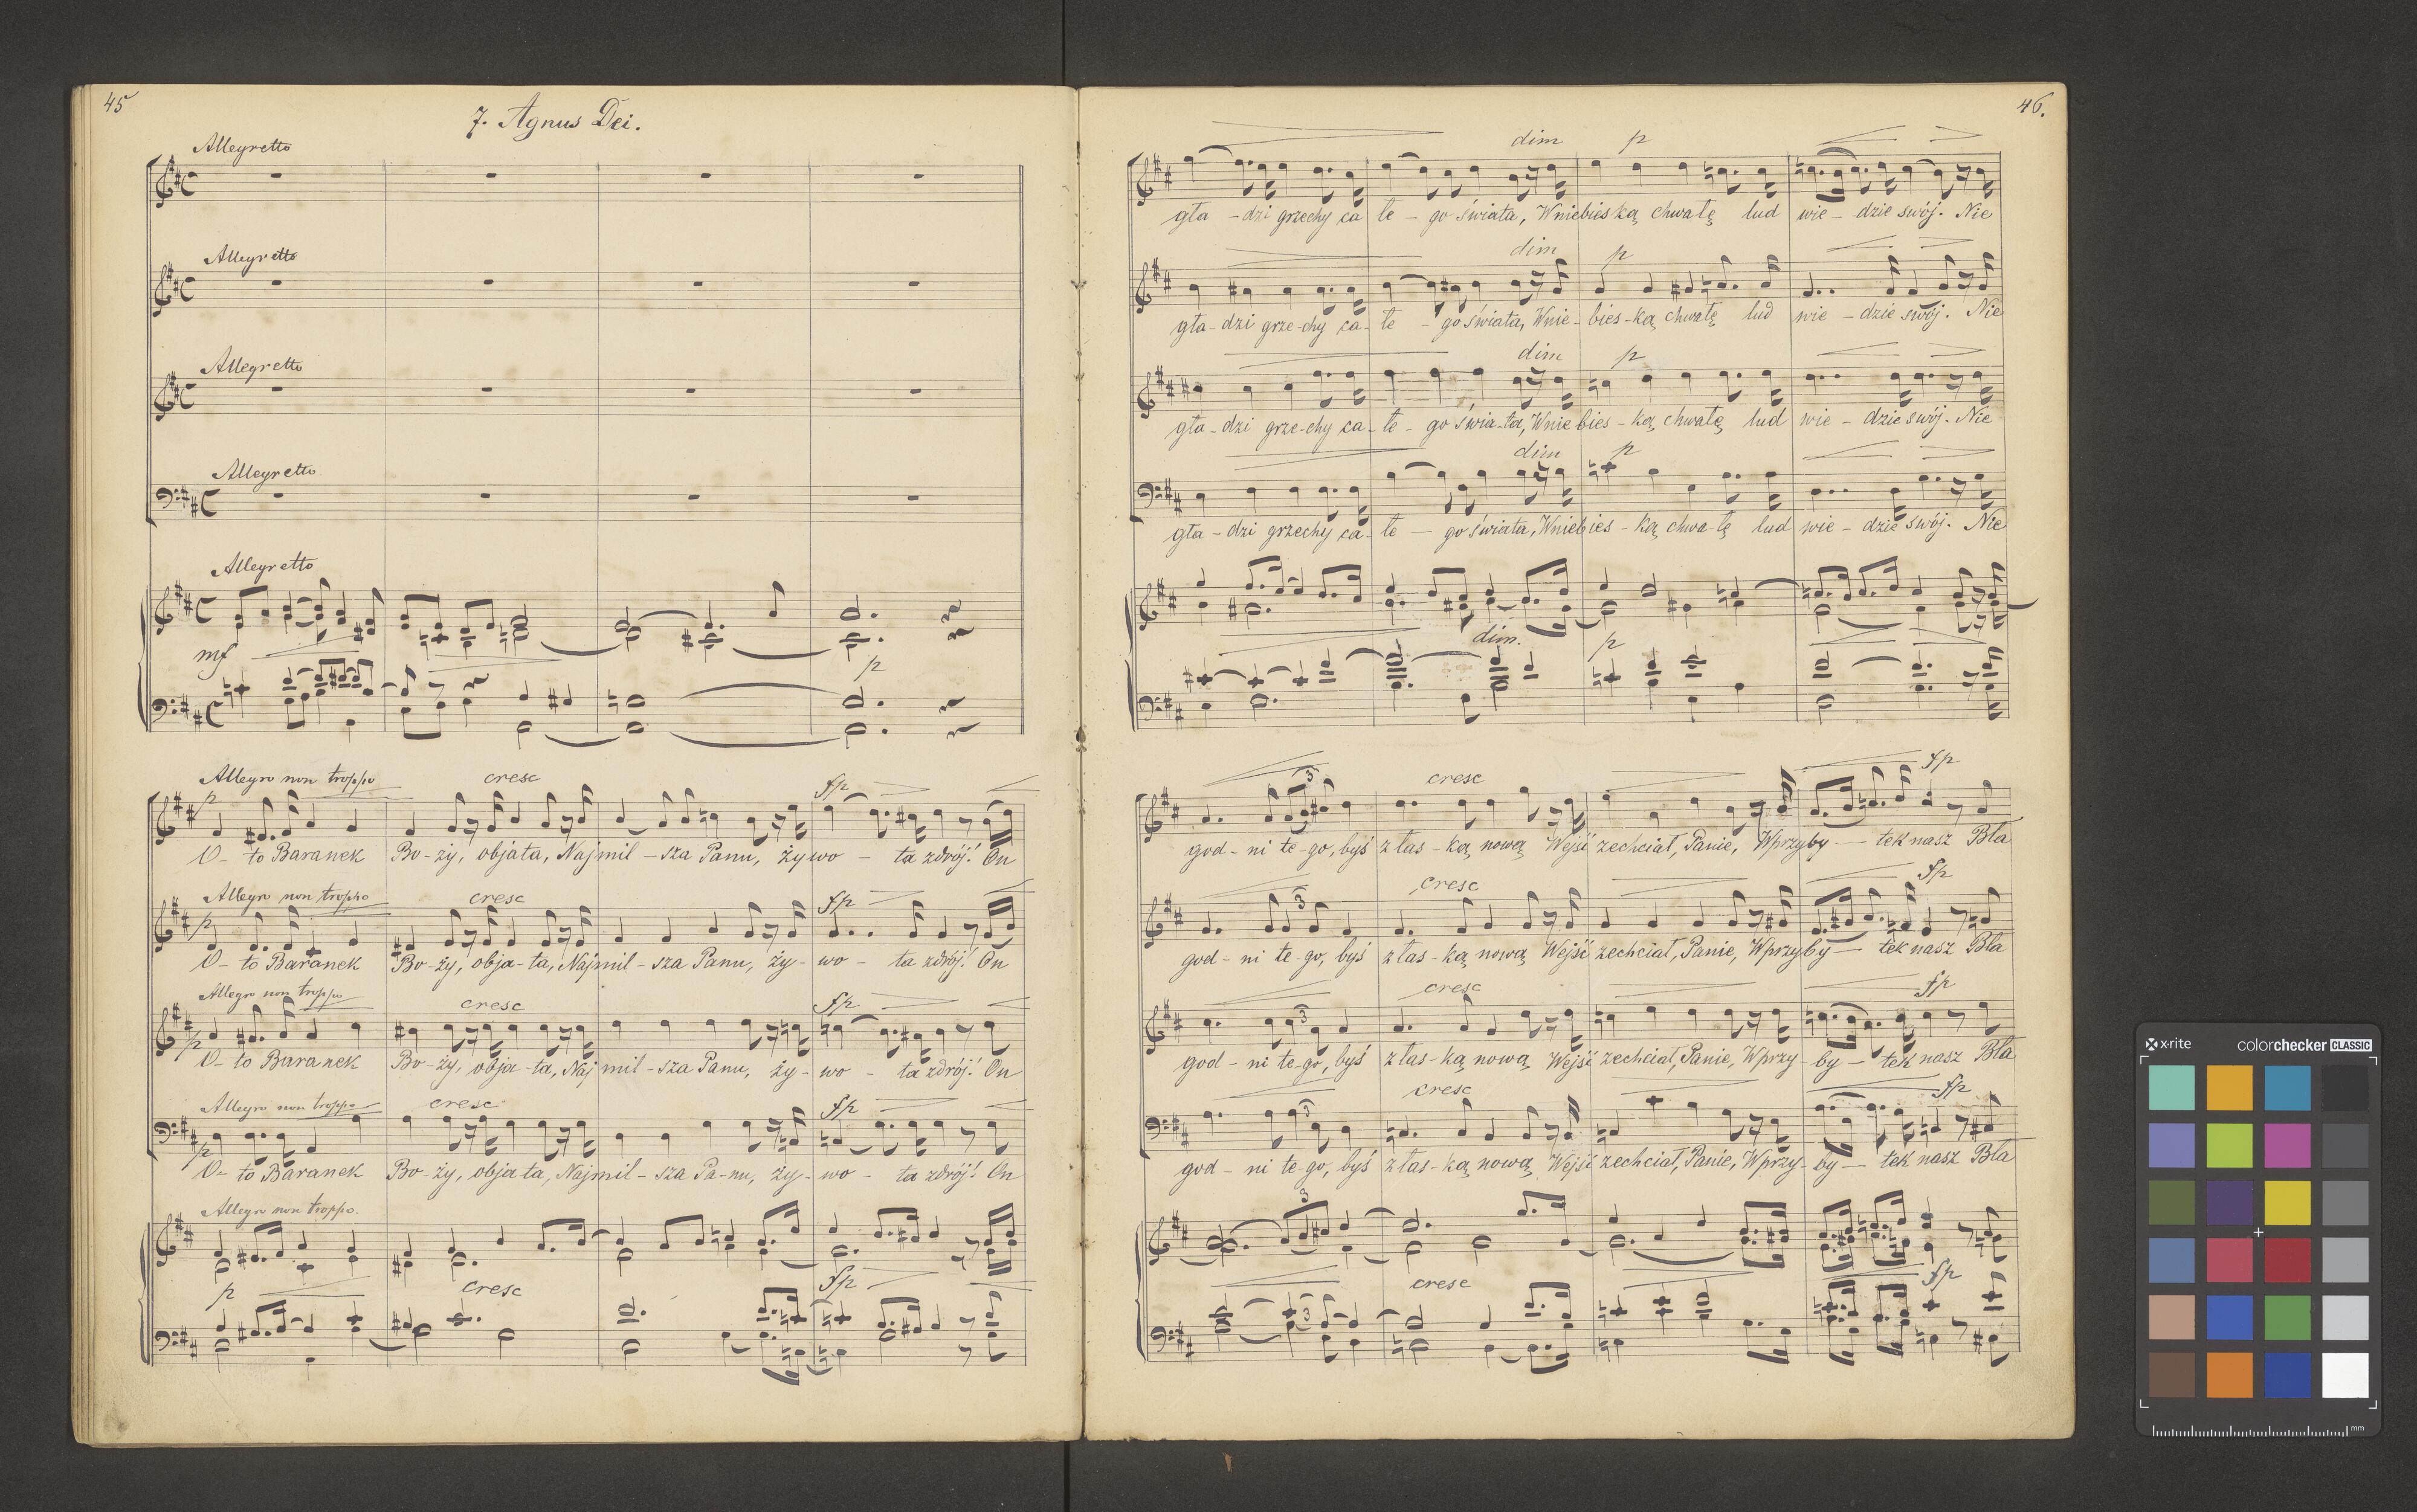 45
7. Agnus Dei.
Allegretto
Allegretto
Allegretto
Allegretto
Allegretto
mf
p
Allegro non troppo cresc fp
p
O - to Baranek Bo - ży, objata, Najmil - sza Panu, żywo - ta zdrój! On
Allegro non troppo cresc fp
p
O - to Baranek Bo - ży, obja - ta, Najmil - sza Panu, ży - wo - ta zdrój! On
Allegro non troppo cresc fp
p
O - to Baranek Bo - ży, obja - ta, Naj mil - sza Panu, ży - wo - ta zdrój! On
Allegro non troppo cresc fp
p
O - to Baranek Bo - ży, objata, Najmil - sza Pa - nu, ży - wo - ta zdrój! On
Allegro non troppo.
p cresc fp
46.
dim p
gła - dzi grzechy ca łe - go świata, Wniebieską chwałę lud wie - dzie swój. Nie
dim p
gła - dzi grze - chy ca - łe - go świata, Wnie - bies - ką chwałę lud wie - dzie swój. Nie
dim p
gła - dzi grze - chy ca - łe - go świa - ta, Wnie bies - ką chwałę lud wie - dzie swój. Nie
dim p
gła - dzi grzechy ca - łe - go świata, Wniebies - ką chwa - łę lud wie - dzie swój. Nie
dim. p
3 cresc fp
god - ni te - go, byś z łas - ką nową Wejść zechciał, Panie, Wprzyby - tek nasz Bła
3 cresc fp
god - ni te - go, byś z łas - ką nową Wejść zechciał, Panie, Wprzyby - tek nasz Bła
3 cresc fp
god - ni te - go, byś z łas - ką nową Wejść zechciał, Panie, Wprzy - by - tek nasz Bła
3 cresc fp
god - ni te - go, byś z łas - ką nową Wejść zechciał, Panie, Wprzy - by - tek nasz Bła
3
3 cresc fp
x-rite colorchecker CLASSIC
mm